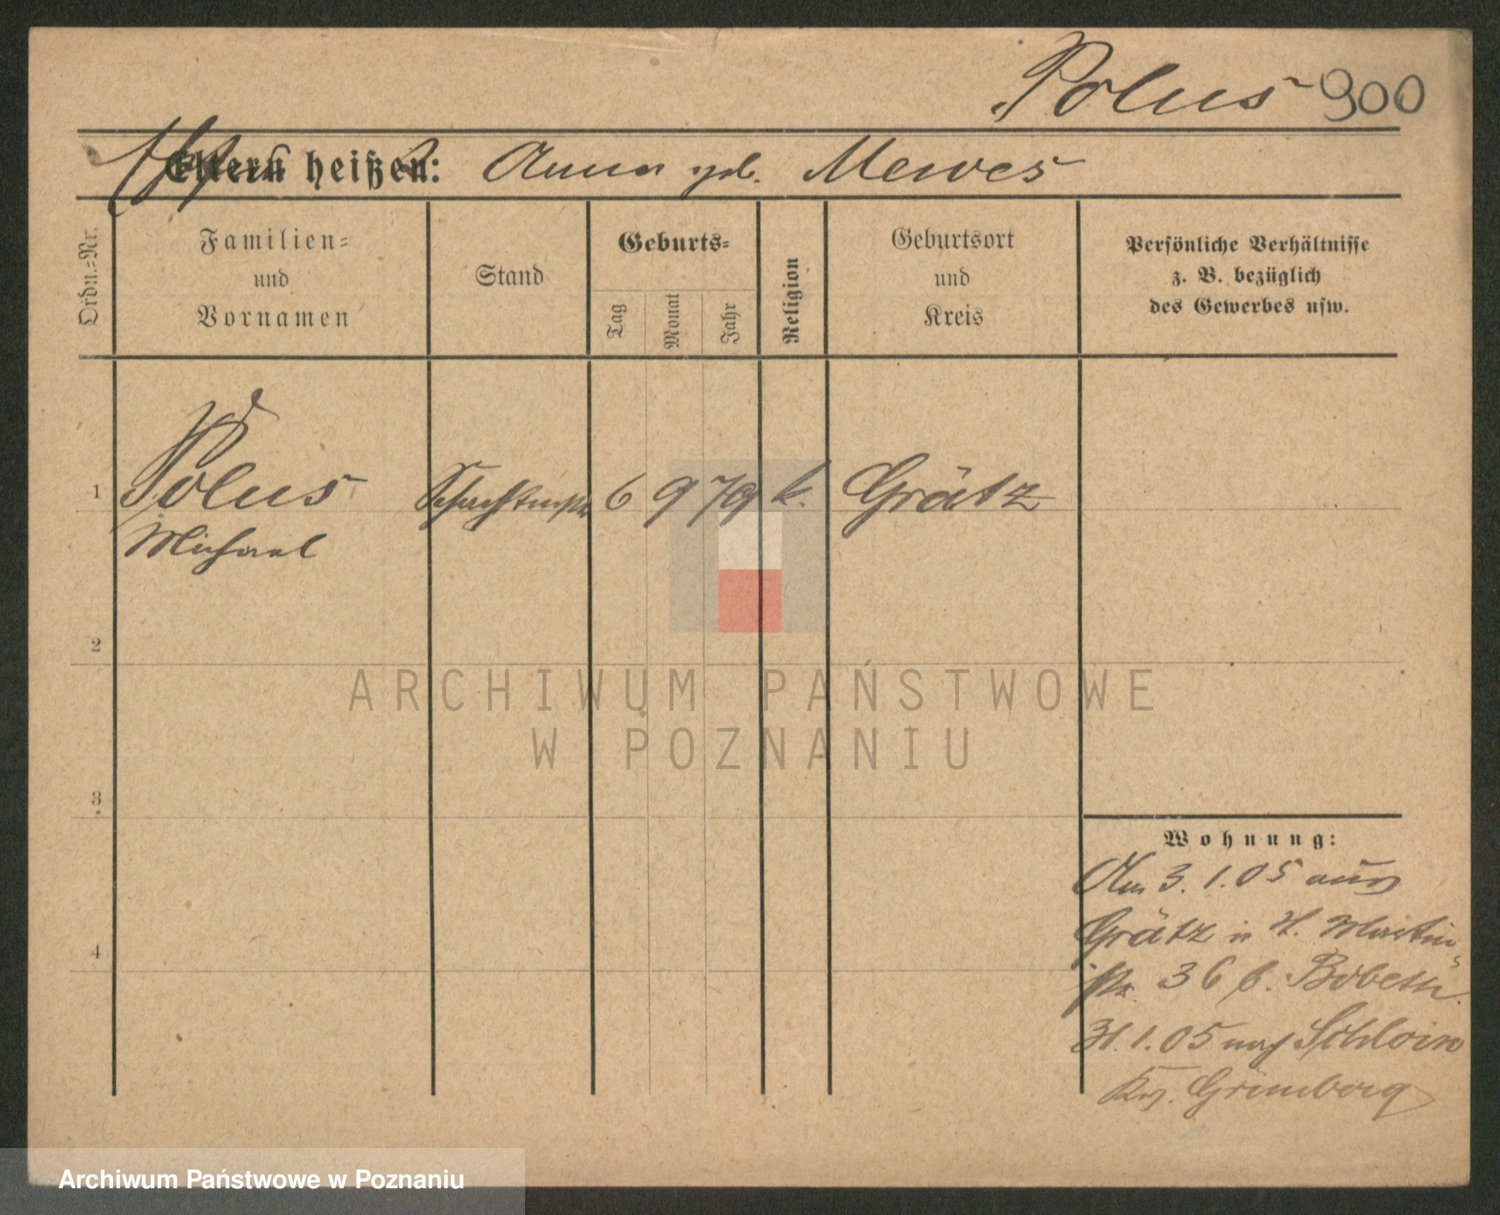 Polus 900
Eltern heißen: Anna geb. Mewes
Ordn.-Nr.
Familien-
und
Vornamen
Stand
Geburts-
Tag
Monat
Jahr
Religion
Geburtsort
und
Kreis
Persönliche Verhältnisse
z. B. bezüglich
des Gewerbes usw.
1 Polus Schachtmstr. 6 9 79 k. Grätz
Michael
2
3
4
Wohnung:
Am 3.1.05 aus
Grätz n. H. Martin-
str. 36 b.
31.1.05 nach Schloin
Krs. Grünberg
ARCHIWUM PAŃSTWOWE
W POZNANIU
Archiwum Państwowe w Poznaniu